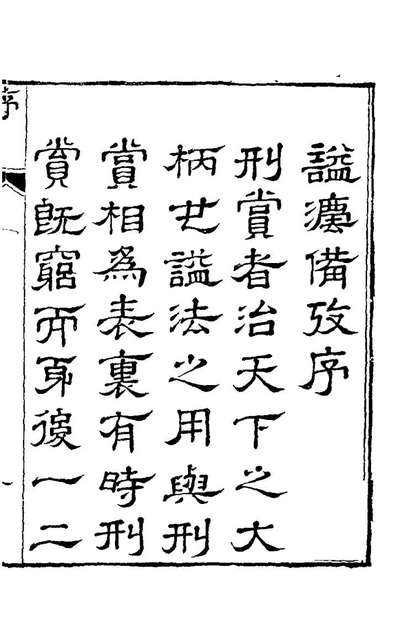 諡灋備攷序
刑賞者治天下之大
柄也諡法之用與刑
賞相為表裏有時刑
賞既窮而身後一二
序